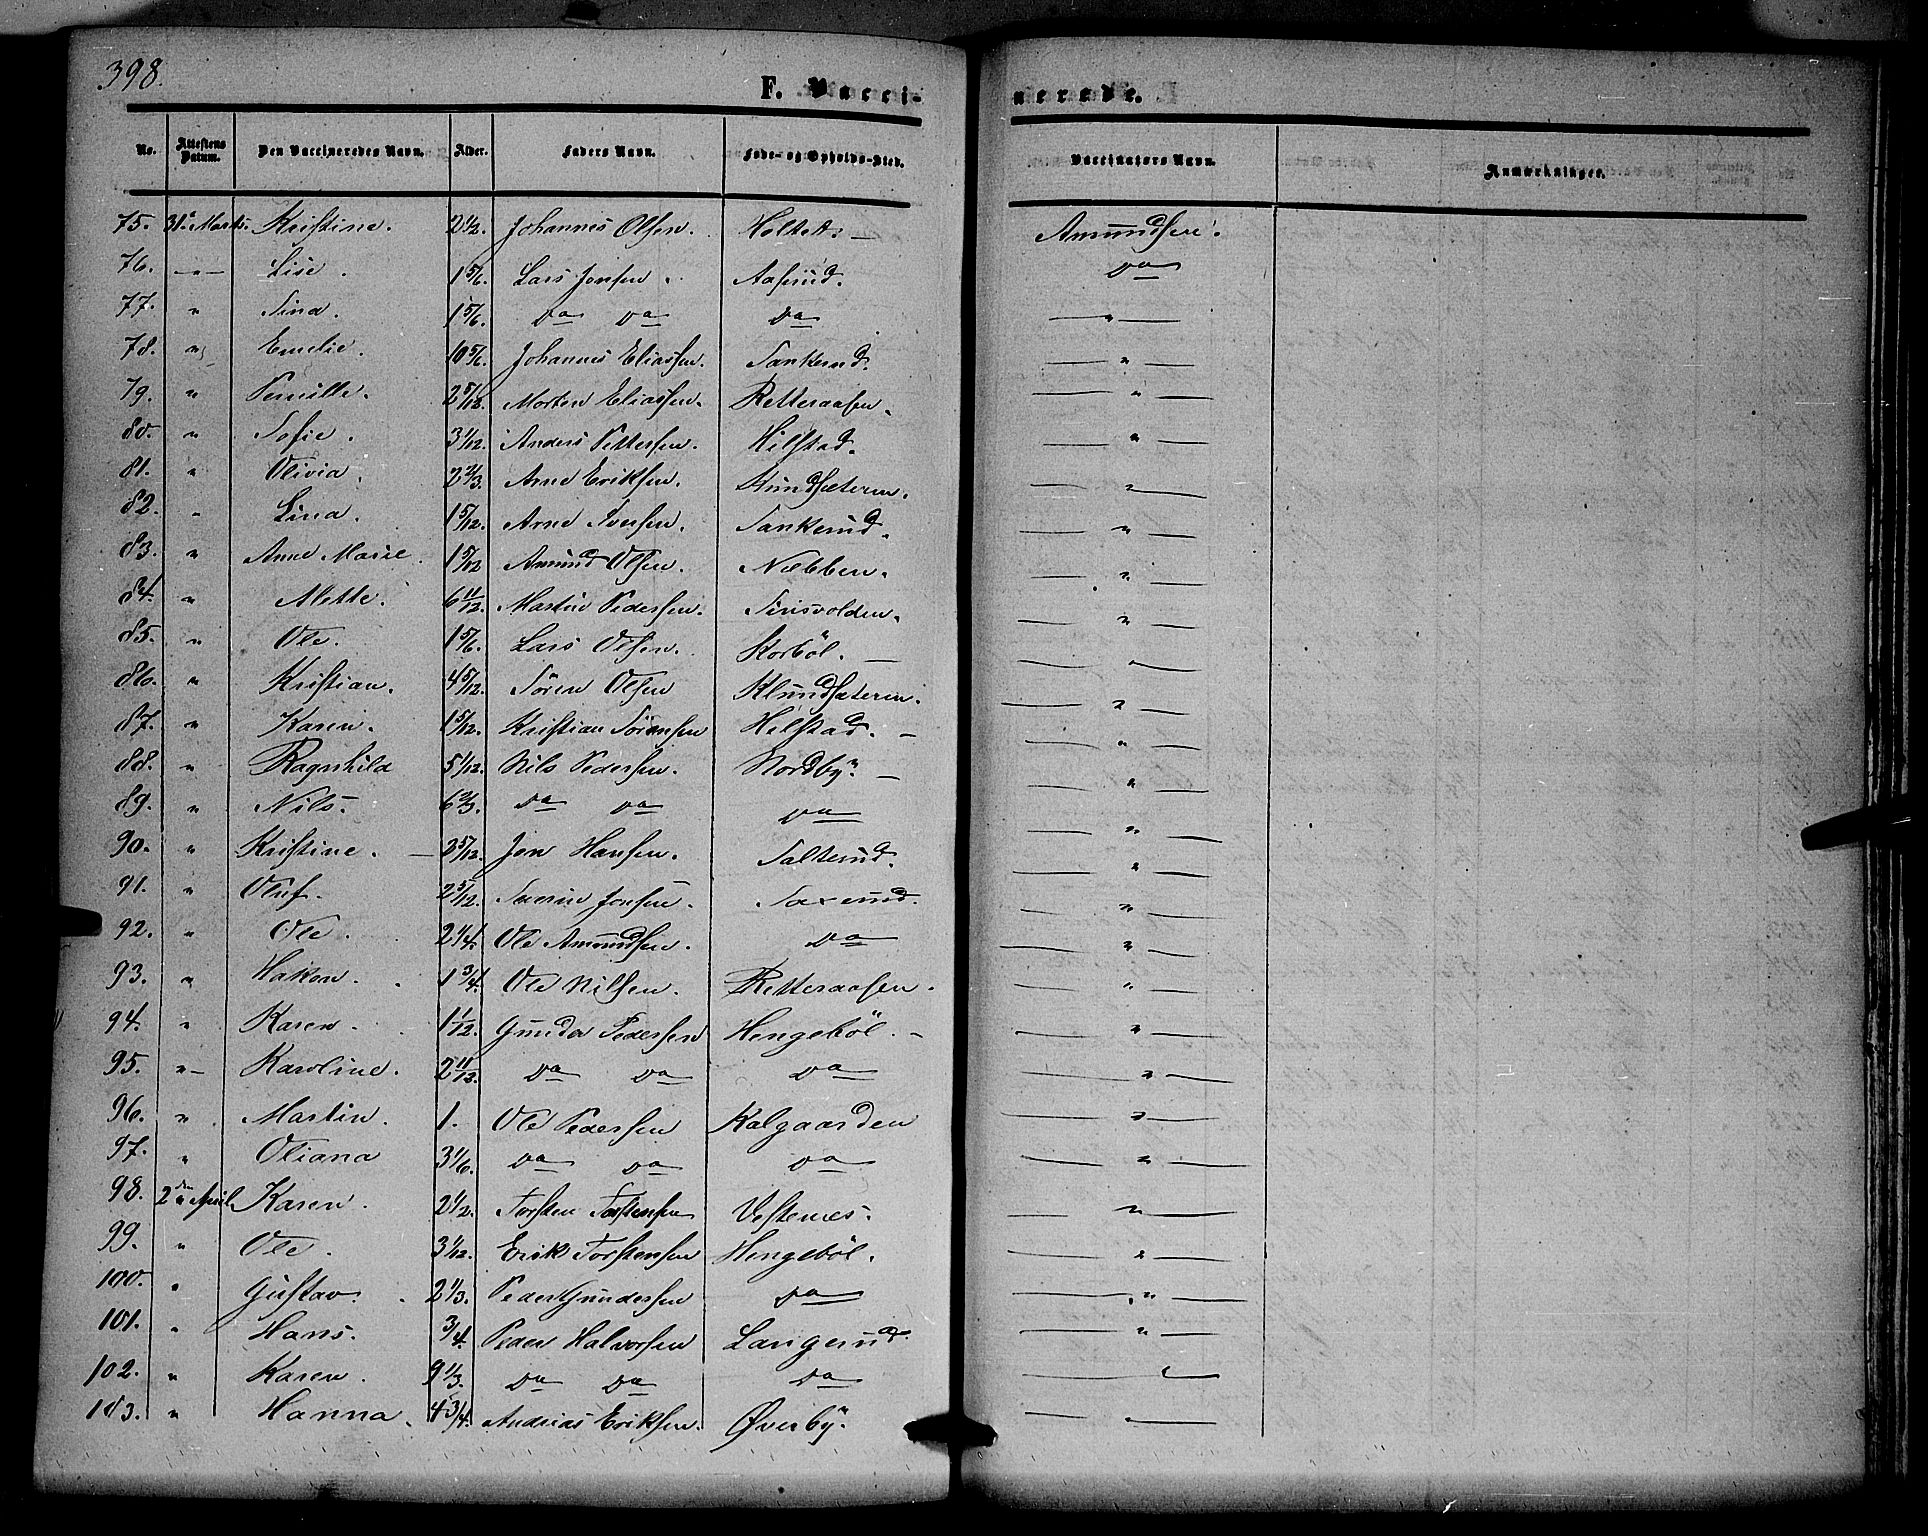 398.
F. Vacci-
nerede.
No. Attestens Datum. Den Vaccineredes Navn. Alder. Faders Navn. Føde- og Opholds-Sted. Vaccinators Navn. Anmærkninger.
75. 31te Marts. Kristine. 2 1/2. Johannes Olsen. Holtet. — Amundsen.
76. —"— Lise. 1 5/6. Lars Jonsen. Aasrud. Do
77. " Tina. 1 5/6. Do Do Do — " —
78. " Emelie. 10 5/6. Johannes Eliassen. Tankerud. — " —
79. " Pernille. 2 5/12. Morten Eliassen. Retteraasen. — " —
80. " Sofie. 3 1/12. Anders Pettersen. Hilstad. — " —
81. " Olivia. 2 2/3. Arne Eriksen. Klundsæteren. — " —
82. " Lina. 1 5/12. Arne Iversen. Tankerud. — " —
83. " Anne Marie. 1 5/12 Amund Olsen. Næbben. — " —
84. " Mette. 6 11/12. Martin Pedersen. — " —
85. " Ole. 1 5/6. Lars Olsen. Korböl. — — " —
86. " Kristian. 4 5/12. Sören Olsen Klundsæteren. — " —
87. " Karen. 1 5/12. Kristian Sörensen Helstad. — — " —
88. " Ragnhild 5 1/12. Nils Pedersen. Nordby. — — " —
89. " Nils. 6 2/3. Do Do Do — " —
90. " Kristine. — 3 5/12. Jon Hansen. Salterud. — " —
91. " Oluf. 2 5/12. Severin Jonsen. Saxerud. — " —
92. " Ole. 2 1/4. Ole Amundsen. Do — " —
93. " Hakon. 1 3/4. Ole Nilsen. Retteraasen. — " —
94. " Karen. 1 1/12. Gunder Pedersen Hengeböl. — — " —
95. "— Karoline. 2 11/12. Do Do Do — " —
96. " Martin. 1. Ole Pedersen Kalgaarden — " —
97. " Oliana 3 1/6. Do Do Do — " —
98. 2den April. Karen. 2 1/2. Torsten Torstensen Vestenes. — " —
99. " Ole. 3 1/12. Erik Torstensen Hengeböl. — " —
100. " Gustav. 2 1/3. Peder Gundersen Do — " —
101. " Hans. 3/4. Peder Halvorsen Langerud. — " —
102. " Karen. 9 1/3. Do Do Do — " —
103. " Hanna. 4 3/4. Andreas Eriksen. Øverby. — " —